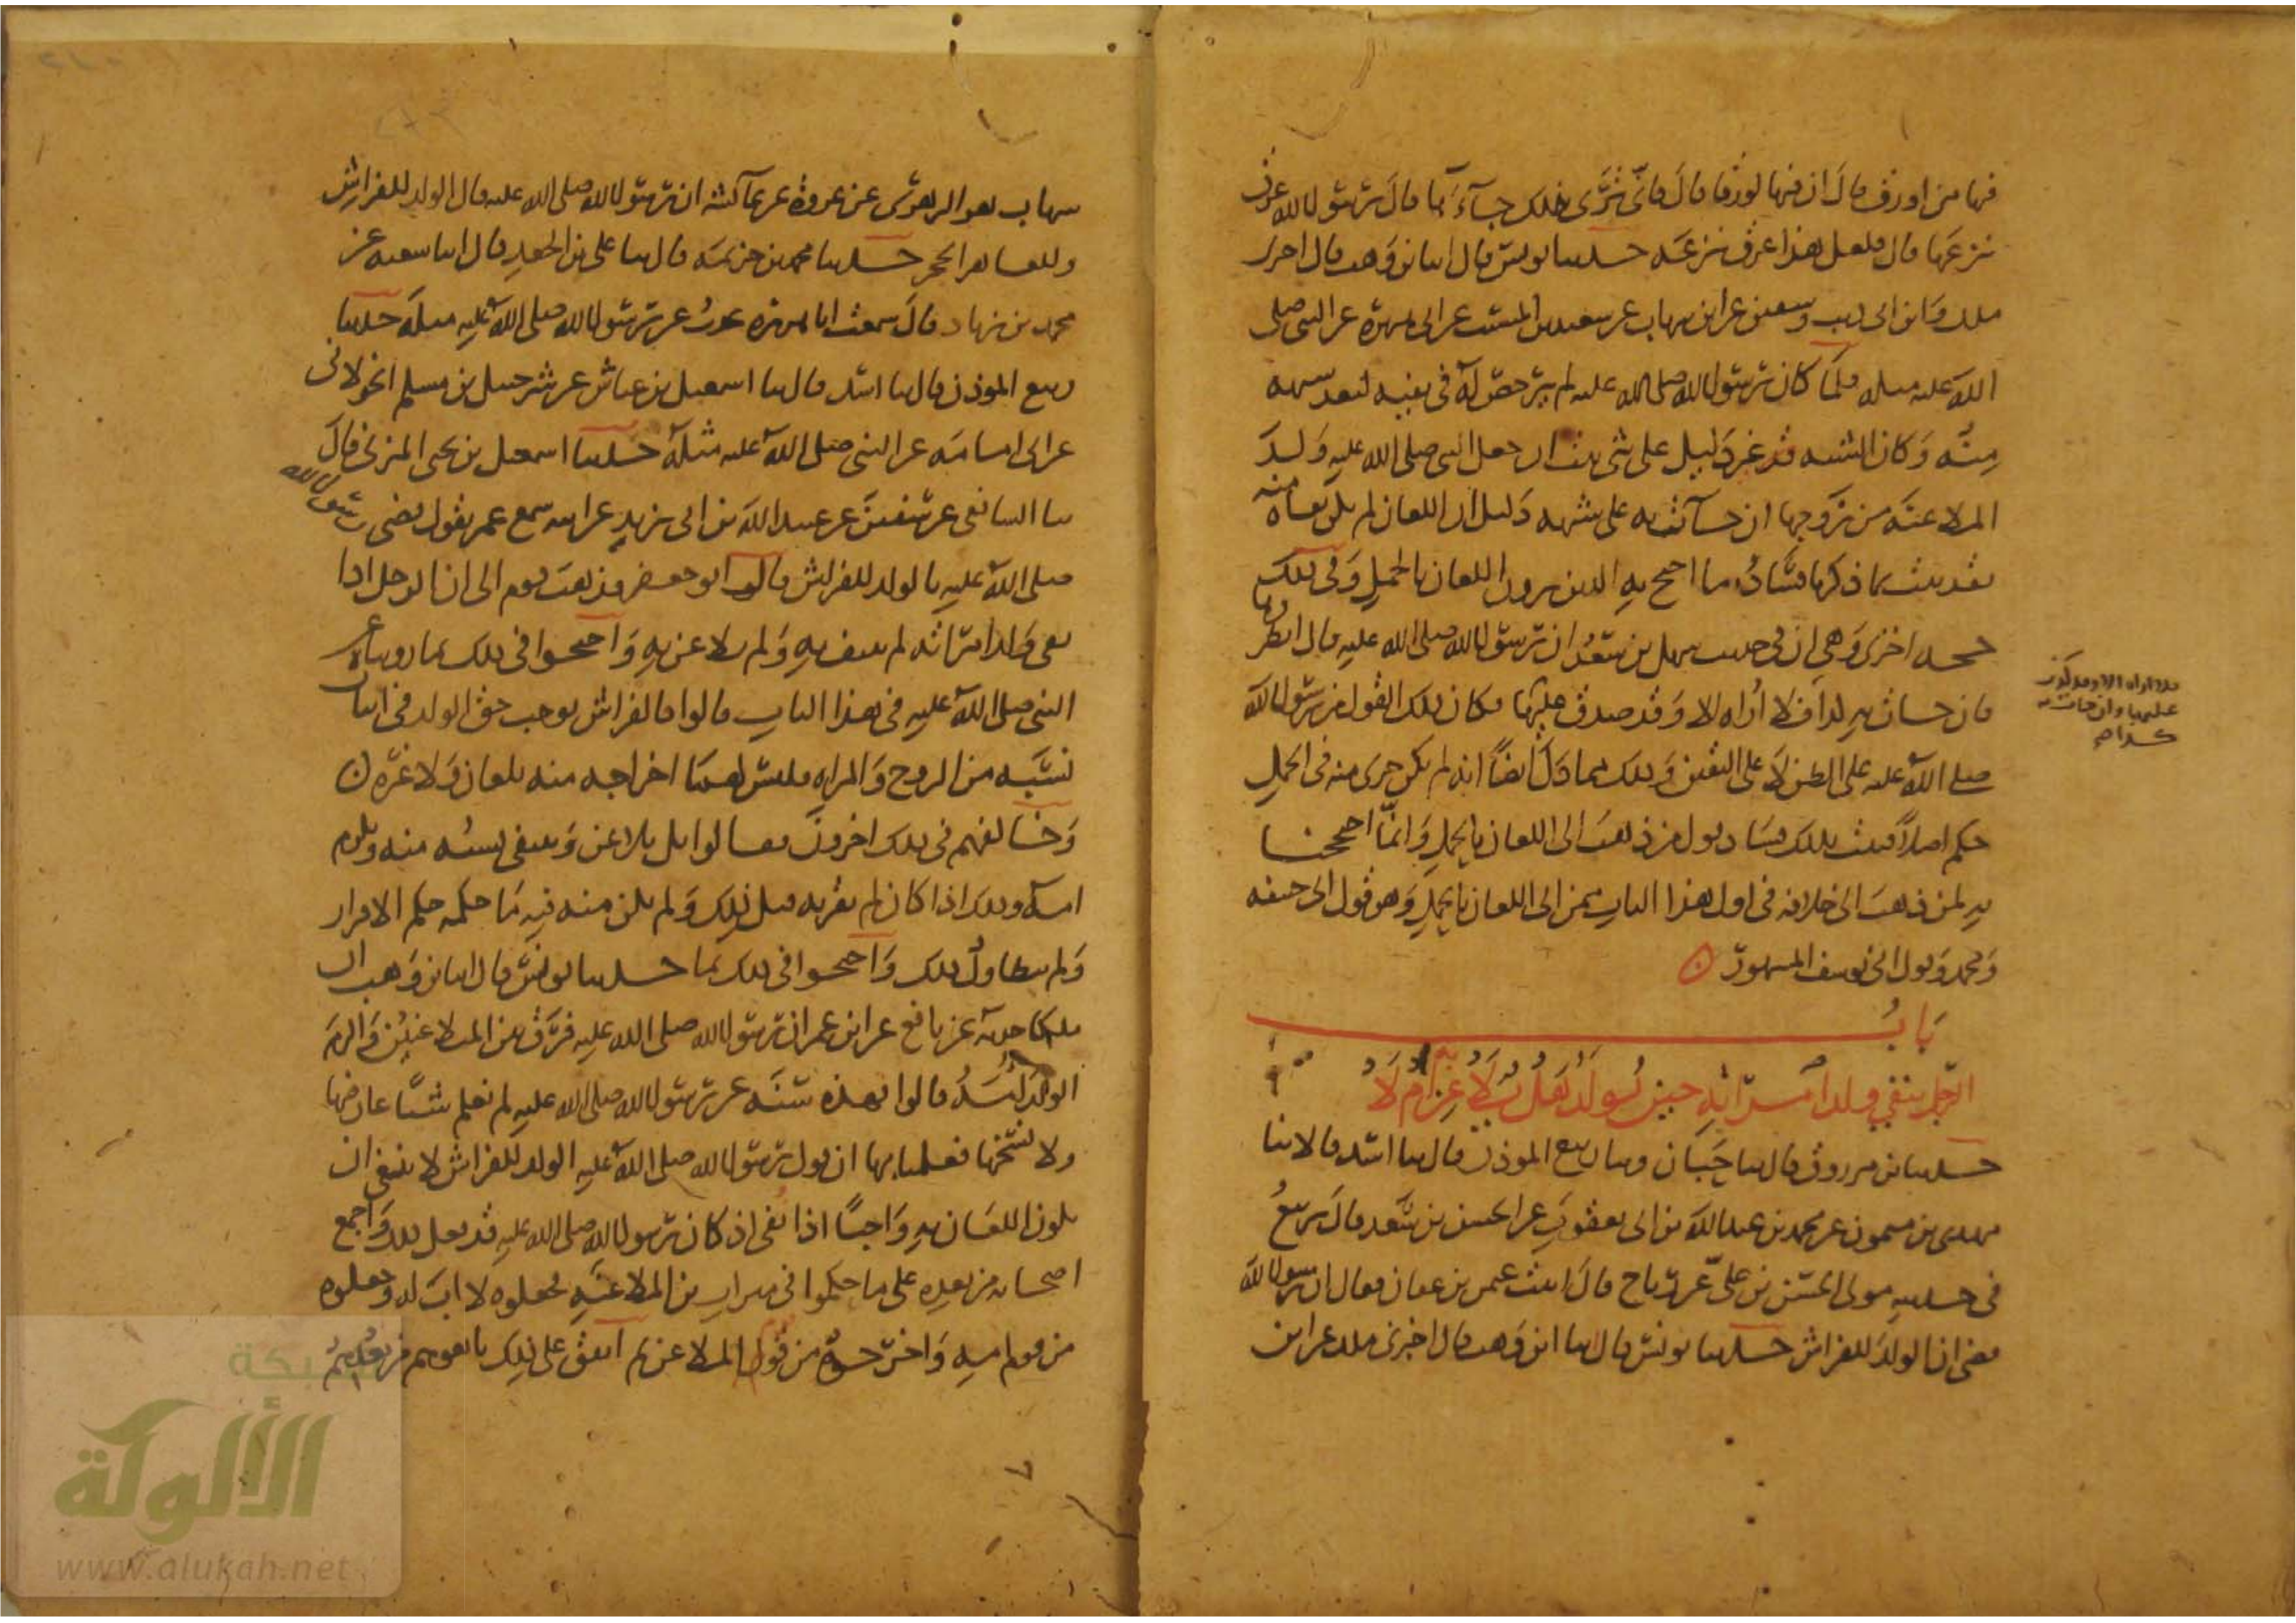 فيها من اورق قال ان فيها لورقا قال فانى ترى ذلك جآءها قال يرسول الله عرق
نزعها قال فلعل هذا عرق نزعه حدثنا يونس قال انا ابن وهب قال اخبرنى
ملك وابن ابى ذيب وسفين عن ابن شهاب عن سعيد بن المسيب عن ابى هريرة عن النبى صلى
الله عليه مثله فلما كان رسول الله صلى الله عليه لم يرخص له فى نفيه لبعد شبهه
منه وكان الشبه غير دليل على شى ثبت ان جعل النبى صلى الله عليه ولد
الملاعنة من زوجها ان جآءت به على شبهه دليل ان اللعان لم يكن نفاه منه
فقد ثبت بما ذكرنا فساد ما احتج به الذين يرون اللعان بالحمل وفى ذلك
حجة اخرى وهى ان فى حديث سهل بن سعد ان رسول الله صلى الله عليه قال انظروها
فان جات به كذا فلا اراه الا وقد صدق عليها فكان ذلك القول من رسول الله
صلى الله عليه على الظن لا على اليقين وذلك مما دل ايضًا انه لم يكن جرى منه فى الحمل
حكم اصلا فثبت بذلك فساد قول من ذهب الى اللعان بالحمل وانما احتججنا
به لمن ذهب الى خلافه فى اول هذا الباب ممن ابى اللعان بالحمل وهو قول ابى حنيفه
ومحمد وقول ابى يوسف المشهور
فلا اراه الا وقد كذب
عليها وان جات به
كذا
باب
الرجل ينفى ولد امراته حين يولد هل يلاعن به ام لا
حدثنا ابن مرزوق قال ثنا حبان وثنا ربيع الموذن قال ثنا اسد قالا ثنا
مهدى بن ميمون عن محمد بن عبد الله بن ابى يعقوب عن الحسن بن سعد قال ربيع
فى حديثه مولى الحسن بن على عن رباح قال اتيت عثمن بن عفان فقال ان رسول الله
قضى ان الولد للفراش حدثنا يونس قال ثنا ابن وهب قال اخبرنى ملك عن ابن
شهاب هو الزهرى عن عروة عن عآئشة ان رسول الله صلى الله عليه قال الولد للفراش
وللعاهر الحجر حدثنا محمد بن خزيمة قال ثنا على بن الجعد قال انا شعبه عن
محمد بن زياد قال سمعت ابا هريرة يحدث عن رسول الله صلى الله عليه مثله حدثنا
ربيع الموذن قال ثنا اسد قال ثنا اسمعيل بن عياش عن شرحبيل بن مسلم الخولانى
عن ابى امامة عن النبى صلى الله عليه مثله حدثنا اسمعيل بن يحيى المزنى قال
ثنا الشافعى عن سفين عن عبيد الله بن ابى يزيد عن ابيه سمع عمر يقول قضى رسول الله
صلى الله عليه بالولد للفراش قال ابو جعفر فذهب قوم الى ان الرجل اذا
نفى ولد امراته لم ينتف به ولم يلاعن به واحتجوا فى ذلك بما رويناه عن
النبى صلى الله عليه فى هذا الباب قالوا فالفراش يوجب حق الولد فى اثبات
نسبه من الزوج والمراه فليس لهما اخراجه منه بلعان ولا غيره
وخالفهم فى ذلك اخرون فقالوا بل يلاعن وينتفى نسبه منه ويلزم
امه وذلك اذا كان لم يقر به قبل ذلك ولم يكن منه فيه ما حكمه حكم الاقرار
ولم يتطاول ذلك واحتجوا فى ذلك بما حدثنا يونس قال انا ابن وهب ان
ملكا حدثه عن نافع عن ابن عمر ان رسول الله صلى الله عليه فرق بين المتلاعنين والزم
الولد امه قالوا فهذه سنة عن رسول الله صلى الله عليه لم نعلم شيًا عارضها
ولا نسخها فعلمنا بها ان قول رسول الله صلى الله عليه الولد للفراش لا ينفى ان
يكون اللعان به واجبًا اذا نفى اذ كان رسول الله صلى الله عليه قد فعل ذلك واجمع
اصحابه من بعده على ما حكموا فى ميراث ابن الملاعنة فجعلوه لا اب له وجعلوه
من قوم امه واخرجوه من قوم الملاعن ثم اتفق على ذلك تابعوهم من بعدهم
شبكة
الألوكة
www.alukah.net